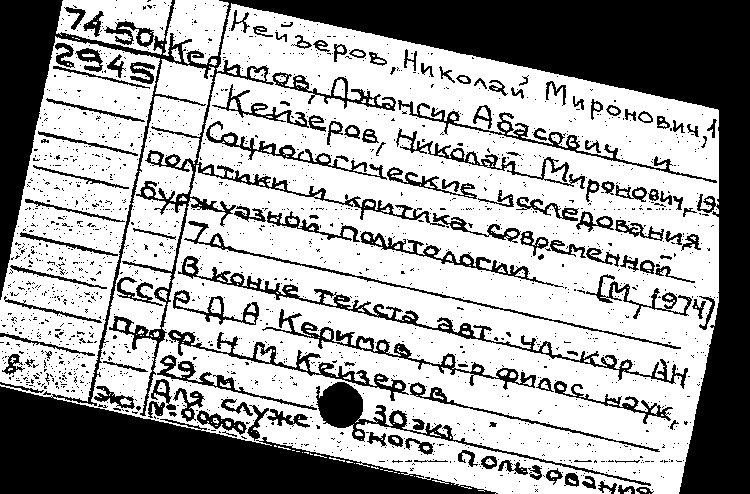 Кейзеров, Николай Миронович, 1
74-50к
2945
Керимов, Джангир Абасович и
Кейзеров, Николай Миронович, 19
Социологические исследования
политики и критика современной
буржуазной политологии. [М, 1974]
7л.
В конце текста авт.: чл.-кор АН
СССР Д. А Керимов, д-р филос. наук,
проф. Н М. Кейзеров.
29 см. 30 экз.
Для служебного пользования
Экз. № 000006.